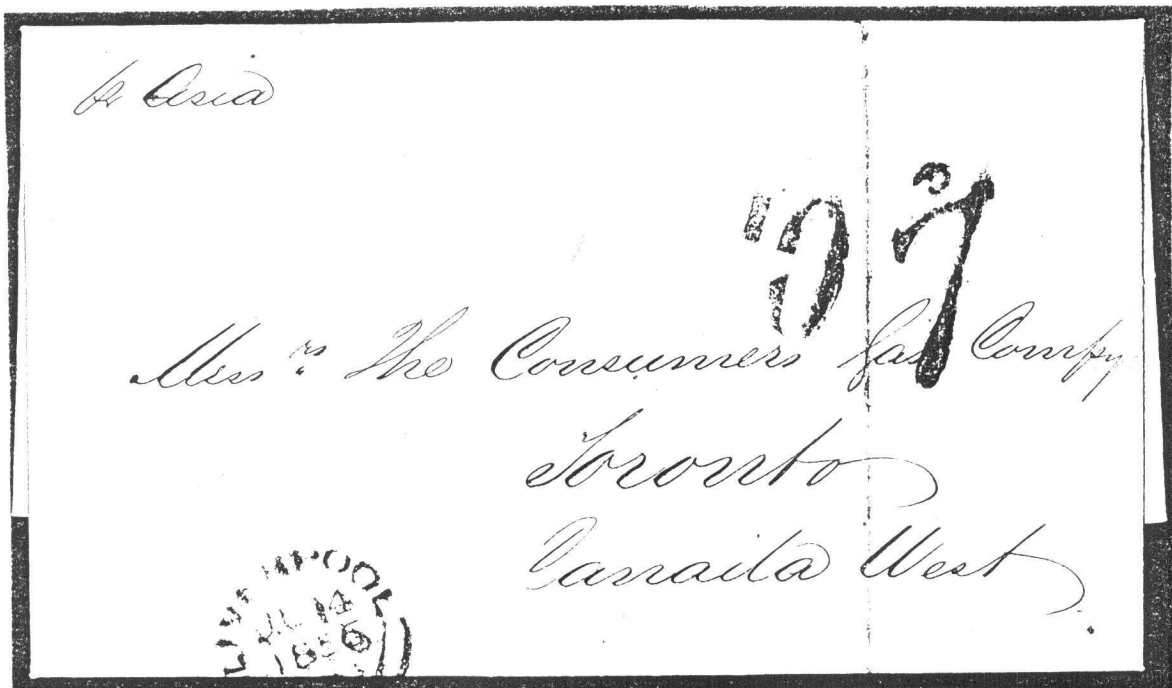 pr Asia
10 7
Messrs The Consumers Gas Compy
Toronto
Canada West
LIVERPOOL
JL 14
1856